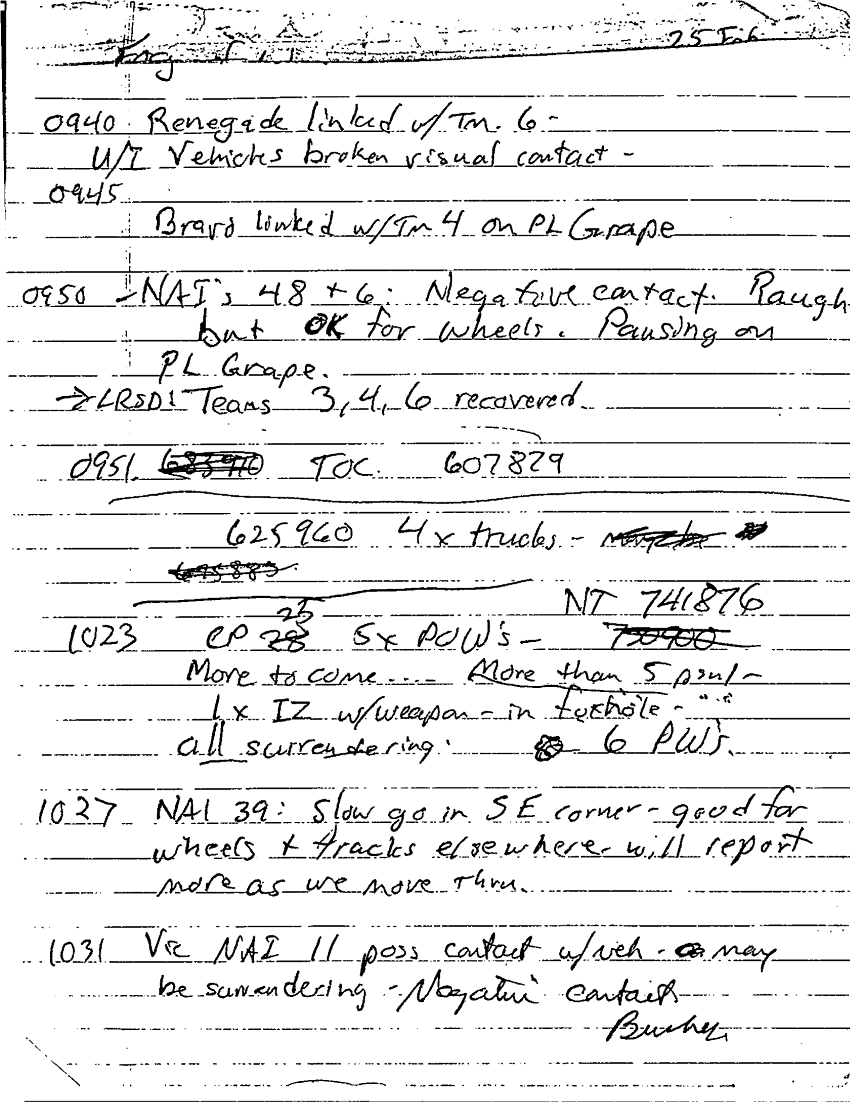 25 Feb
0940 Renegade linked w/Tm. 6 -
U/I Vehicles broken visual contact -
0945
Bravo linked w/Tm 4 on PL Grape
0950 - NAI's 48 + 6: Negative contact. Rough
but OK for wheels. Pausing on
PL Grape.
→ LRSD: Teams 3, 4, 6 recovered.
0951. 683970 TOC 607829
625960 4x trucks -
695883
NT 741876
1023 CP 28 23 5x POW's - 730900
More to come .... More than 5 -
1 x IZ w/weapon - in foxhole -
all surrendering. 6 PW's.
1027 NAI 39: Slow go in SE corner - good for
wheels + tracks elsewhere - will report
more as we move thru.
1031 Vic NAI 11 poss contact w/veh - may
be surrendering - Negative contact